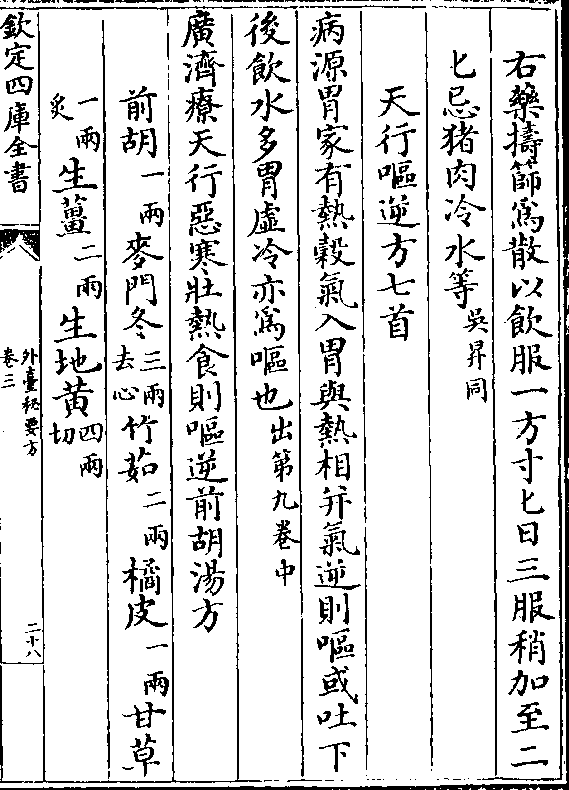 右藥擣篩爲散以飲服一方寸匕日三服稍加至二
匕忌猪肉冷水等吳昇同
天行嘔逆方七首
病源胃家有熱穀氣入胃與熱相并氣逆則嘔或吐下
後飲水多胃虛冷亦爲嘔也出第九卷中
廣濟療天行惡寒壯熱食則嘔逆前胡湯方
前胡一兩麥門冬三兩去心竹茹二兩橘皮一兩甘草
一兩炙生薑二兩生地黃四兩切
欽定四庫全書
外臺秘要方
卷三
二十八